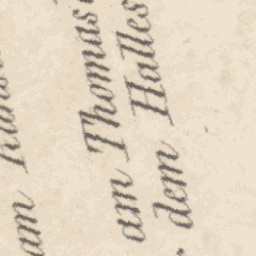 am
am Thomas
dem Halles